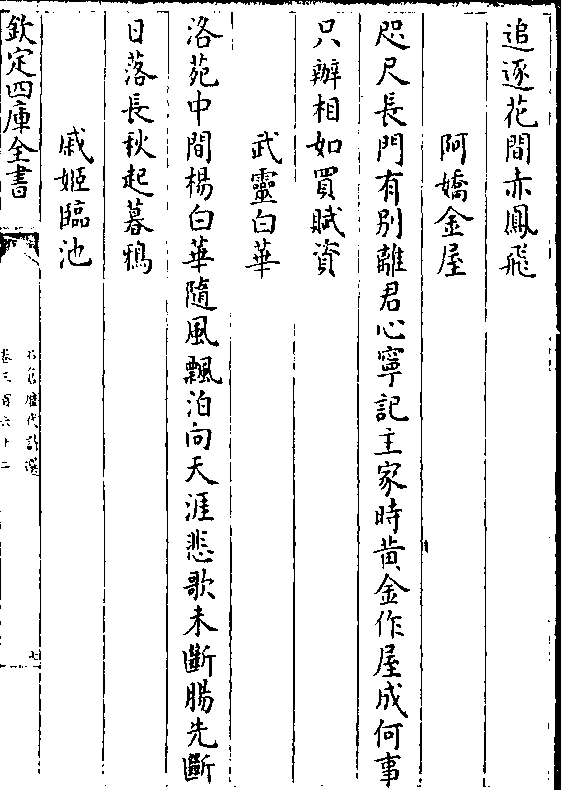 追逐花間赤鳳飛
阿嬌金屋
咫尺長門有別離君心寧記主家時黄金作屋成何事
只辦相如買賦資
武靈白華
洛苑中間楊白華隨風飄泊向天涯悲歌未斷腸先斷
日落長秋起暮鴉
戚姬臨池
欽定四庫全書
石倉歴代詩選
卷三百六十二
七